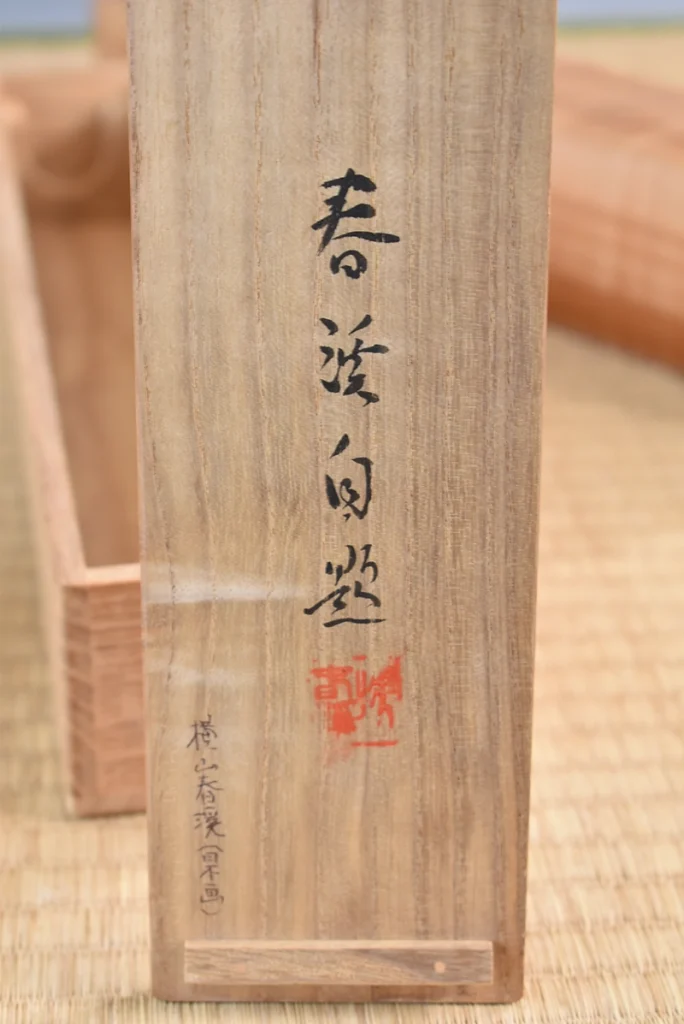 春渓自題
横山春渓(日本画)